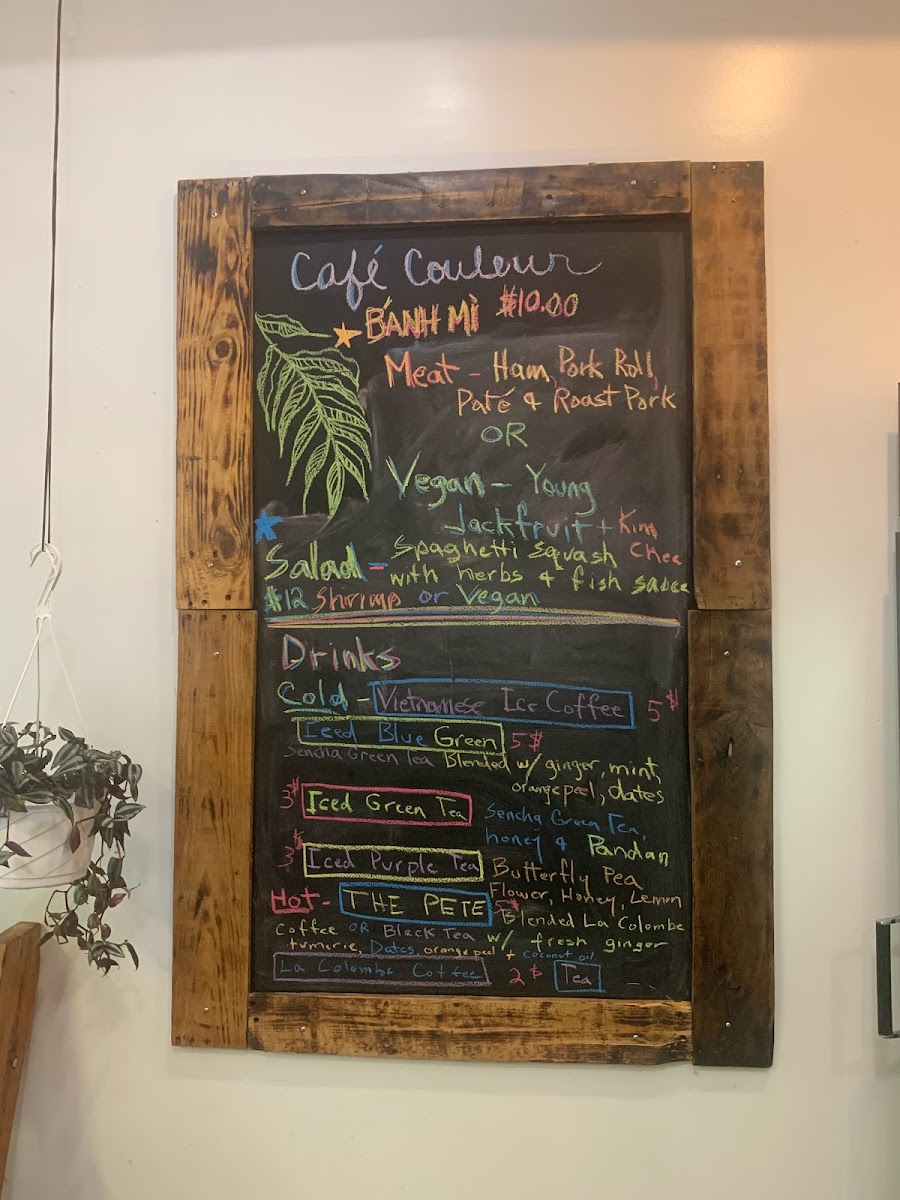 Café Couleur
BÁNH MÌ $10.00
Meat - Ham, Pork Roll,
Paté & Roast Pork
OR
Vegan - Young
Jackfruit + Kim
Chee
Salad - Spaghetti Squash
with herbs & fish sauce
$12 Shrimp or Vegan
Drinks
Cold - Vietnamese Ice Coffee 5$
Iced Blue Green 5$
Sencha Green tea Blended w/ ginger, mint,
orange peel, dates
3$ Iced Green Tea
Sencha Green Tea,
honey & Pandan
3$ Iced Purple Tea Butterfly Pea
Flower, Honey, Lemon
Hot - THE PETE 5$ Blended La Colombe
Coffee OR Black Tea w/ fresh ginger
tumeric, Dates, orange peel + coconut oil.
La Colombe Coffee 2$ Tea